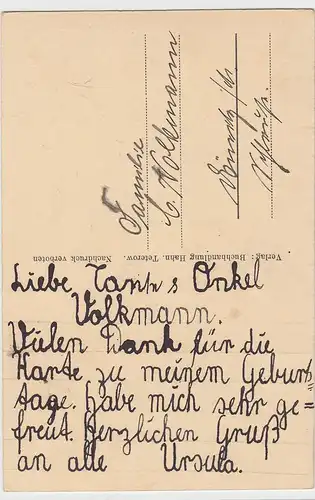 Liebe Tante & Onkel
Volkmann.
Vielen Dank für die
Karte zu meinem Geburts=
tage. Habe mich sehr ge=
freut. Herzlichen Gruß
an alle Ursula.
Verlag: Buchhandlung Hahn, Teterow. Nachdruck verboten
Familie
C. Volkmann